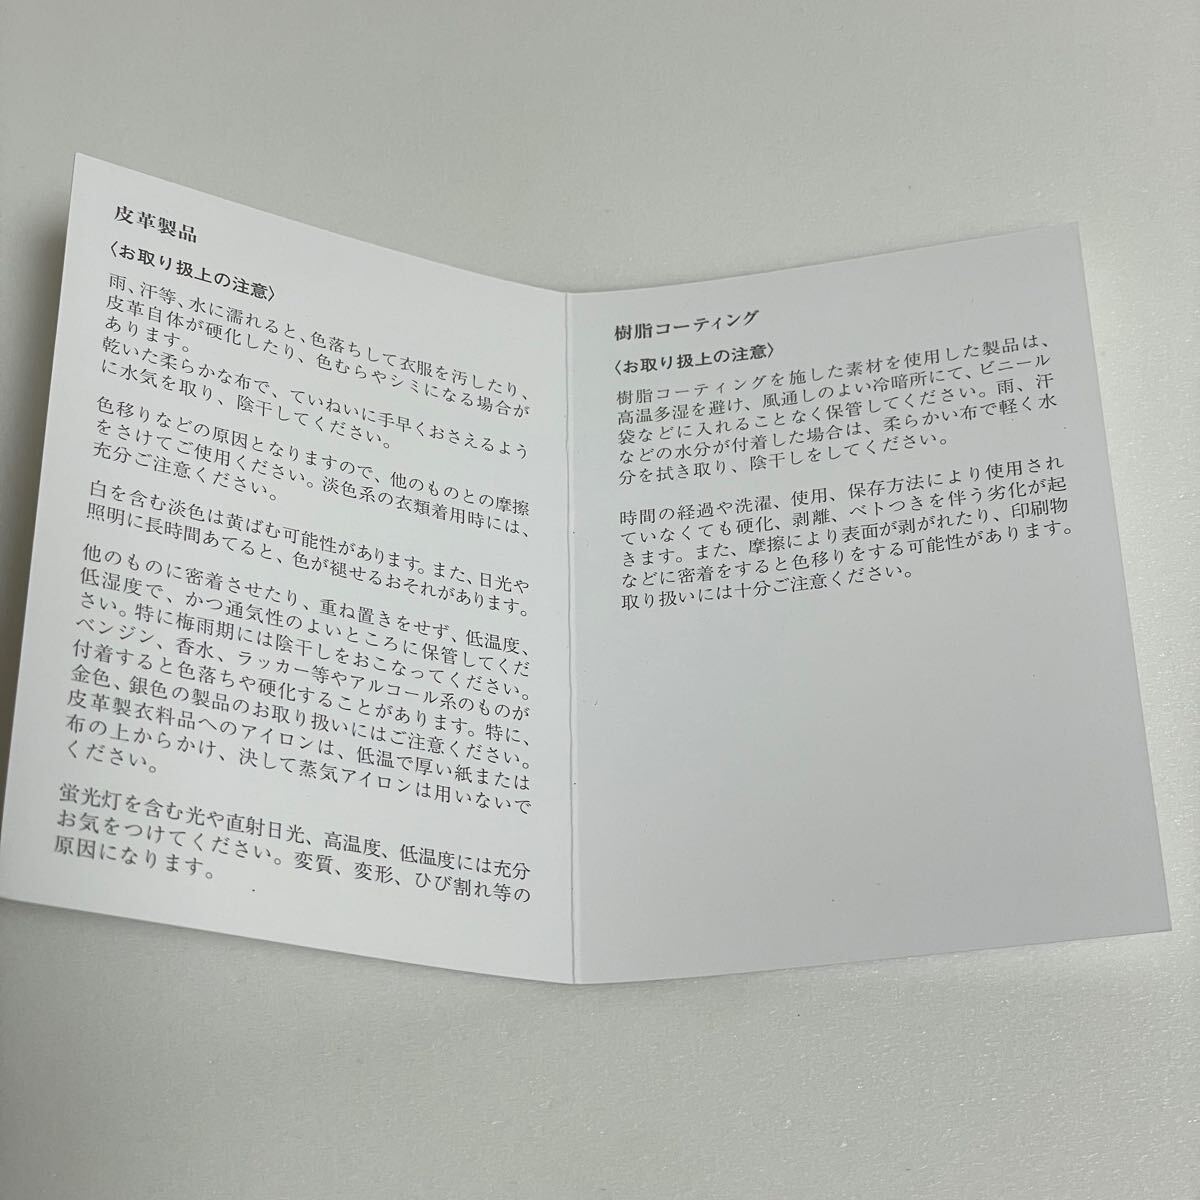 皮革製品
〈お取り扱上の注意〉
雨、汗等、水に濡れると、色落ちして衣服を汚したり、
皮革自体が硬化したり、色むらやシミになる場合が
あります。
乾いた柔らかな布で、ていねいに手早くおさえるよう
に水気を取り、陰干してください。
色移りなどの原因となりますので、他のものとの摩擦
をさけてご使用ください。淡色系の衣類着用時には、
充分ご注意ください。
白を含む淡色は黄ばむ可能性があります。また、日光や
照明に長時間あてると、色が褪せるおそれがあります。
他のものに密着させたり、重ね置きをせず、低温度、
低湿度で、かつ通気性のよいところに保管してくだ
さい。特に梅雨期には陰干しをおこなってください。
ベンジン、香水、ラッカー等やアルコール系のものが
付着すると色落ちや硬化することがあります。特に、
金色、銀色の製品のお取り扱いにはご注意ください。
皮革製衣料品へのアイロンは、低温で厚い紙または
布の上からかけ、決して蒸気アイロンは用いないで
ください。
蛍光灯を含む光や直射日光、高温度、低温度には充分
お気をつけてください。変質、変形、ひび割れ等の
原因になります。
樹脂コーティング
〈お取り扱上の注意〉
樹脂コーティングを施した素材を使用した製品は、
高温多湿を避け、風通しのよい冷暗所にて、ビニール
袋などに入れることなく保管してください。雨、汗
などの水分が付着した場合は、柔らかい布で軽く水
分を拭き取り、陰干しをしてください。
時間の経過や洗濯、使用、保存方法により使用され
ていなくても硬化、剥離、ベトつきを伴う劣化が起
きます。また、摩擦により表面が剥がれたり、印刷物
などに密着をすると色移りをする可能性があります。
取り扱いには十分ご注意ください。